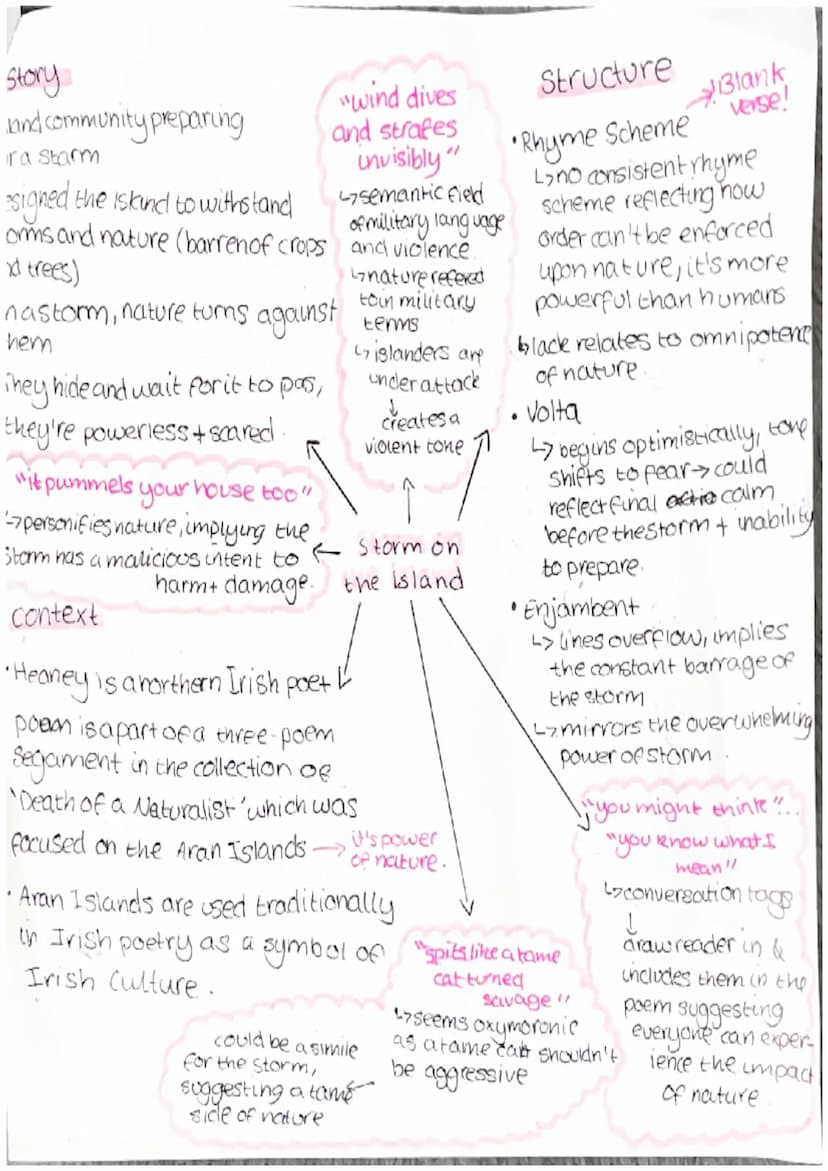 Story
and community preparing
r a storm
signed the Island to withstand
orms and nature (barren of crops
d trees)
n a storm, nature turns against
hem
They hide and wait for it to pas,
they're powerless + scared.
"it pummels your house too"
↳personifies nature, implying the
Storm has a malicious intent to
harm + damage.
"wind dives
and strafes
invisibly"
↳semantic field
of military language
and violence
↳nature refered
to in military
terms
↳islanders are
under attack
↓
creates a
violent tone
Storm on
the island
Structure
→Blank
verse!
•Rhyme Scheme
↳no consistent rhyme
scheme reflecting how
order can't be enforced
upon nature, it's more
powerful than humans
↳lack relates to omnipotent
of nature.
• Volta
↳ begins optimistically, tone
shifts to fear→ could
reflect final calm
before the storm + inability
to prepare.
•Enjambent
↳lines overflow, implies
the constant barrage of
the storm
↳mirrors the overwhelming
power of storm.
Context
•Heaney is a northern Irish poet
poem is a part of a three-poem
segament in the collection of
'Death of a Naturalist' which was
focused on the Aran Islands → it's power
of nature.
• Aran Islands are used traditionally
in Irish poetry as a symbol of
Irish Culture.
"spits like a tame
cat turned
savage"
↳seems oxymoronic
as a tame cat shouldn't
be aggressive
could be a simile
for the storm,
suggesting a tame
side of nature
"you might think"...
"you know what I
mean"
↳conversation tags
↓
draw reader in &
includes them in the
poem suggesting
everyone can exper-
ience the impact
of nature.